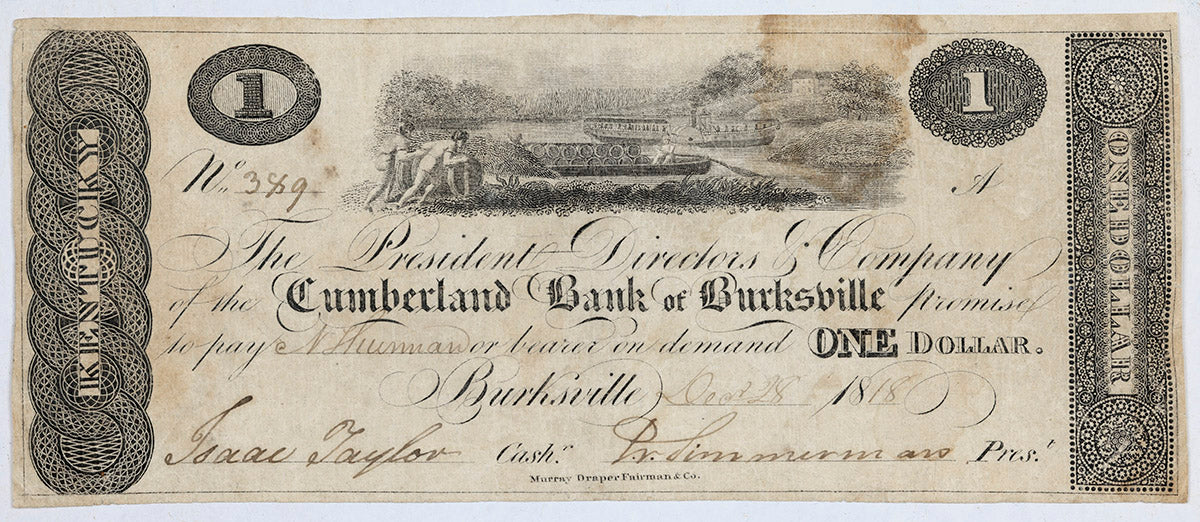 KENTUCKY
1
1
ONE DOLLAR
No. 389
A
The President Directors & Company
of the Cumberland Bank of Burksville promise
to pay or bearer on demand ONE DOLLAR.
Burksville 28 1818
Isaac Taylor Cashr. Simmerman Prest.
Murray Draper Fairman & Co.